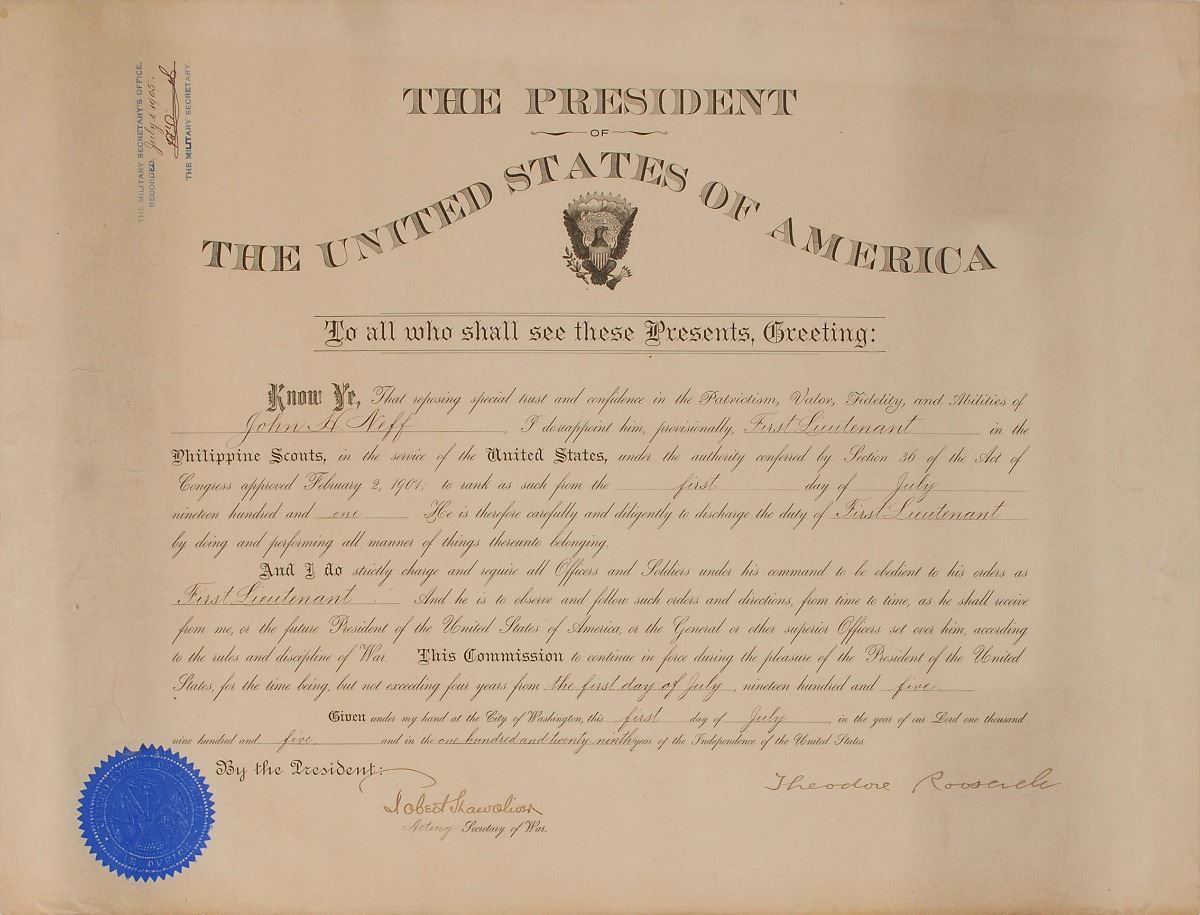 THE MILITARY SECRETARY'S OFFICE.
RECORDED, July 1 1905.
THE MILITARY SECRETARY.
THE PRESIDENT
OF
THE UNITED STATES OF AMERICA
To all who shall see these Presents, Greeting:
Know Ye, That reposing special trust and confidence in the Patriotism, Valor, Fidelity, and Abilities of
John H. Neff, I do reappoint him, provisionally, First Lieutenant in the
Philippine Scouts, in the service of the United States, under the authority conferred by Section 36 of the Act of
Congress approved February 2, 1901; to rank as such from the first day of July
nineteen hundred and one He is therefore carefully and diligently to discharge the duty of First Lieutenant
by doing and performing all manner of things thereunto belonging.
And I do strictly charge and require all Officers and Soldiers under his command to be obedient to his orders as
First Lieutenant. And he is to observe and follow such orders and directions, from time to time, as he shall receive
from me, or the future President of the United States of America, or the General or other superior Officers set over him, according
to the rules and discipline of War. This Commission to continue in force during the pleasure of the President of the United
States, for the time being, but not exceeding four years from the first day of July, nineteen hundred and five.
Given under my hand at the City of Washington, this first day of July, in the year of our Lord one thousand
nine hundred and five, and in the one hundred and twenty-ninth year of the Independence of the United States.
By the President:
Theodore Roosevelt
Robert Shaw Oliver
Acting Secretary of War.
UNITED STATES OF AMERICA
WAR OFFICE